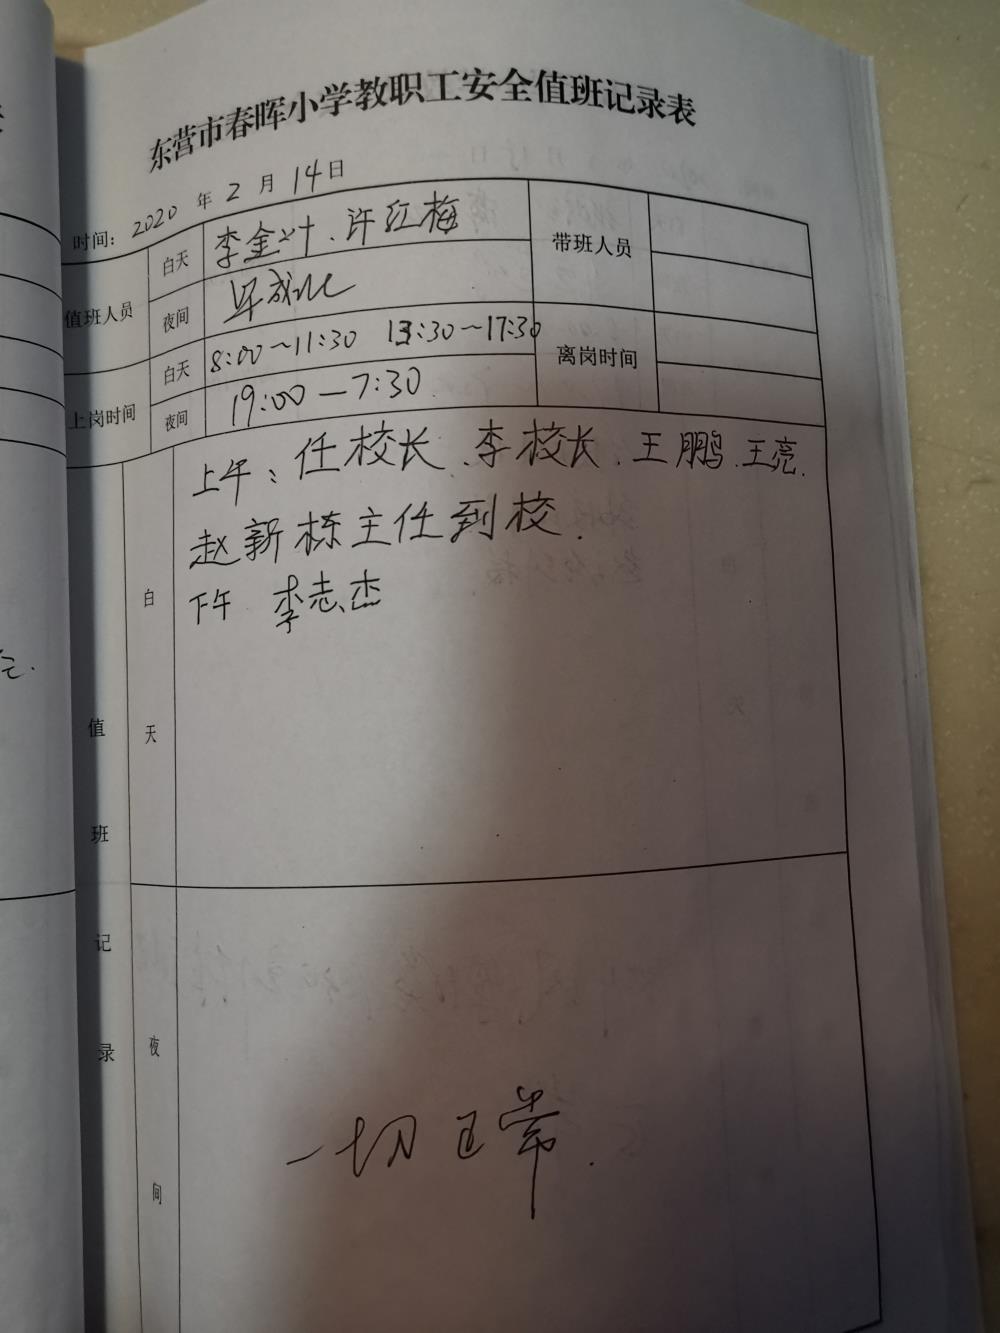 东营市春晖小学教职工安全值班记录表
时间：2020 年 2 月 14 日
值班人员 白天 李金叶、许红梅 带班人员
夜间
上岗时间 白天 8:00～11:30 13:30～17:30 离岗时间
夜间 19:00—7:30
值班记录 白天 上午：任校长、李校长、王鹏、王亮、
赵新栋主任到校.
下午 李志杰
夜间 一切正常.